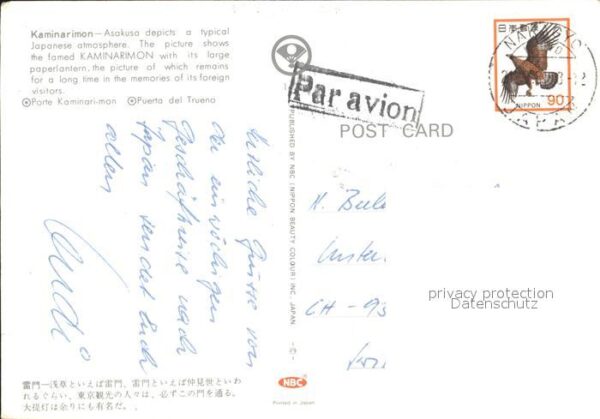 Kaminarimon—Asakusa depicts a typical
Japanese atmosphere. The picture shows
the famed KAMINARIMON with its large
paperlantern, the picture of which remains
for a long time in the memories of its foreign
visitors.
Porte Kaminari-mon Puerta del Trueno
Par avion
日本郵便
NIPPON
90
JAPAN
POST CARD
PUBLISHED BY NBC (NIPPON BEAUTY COLOUR) INC. JAPAN -C-
Herzliche Grüsse von
der einwöchigen
Geschäftsreise nach
Japan sendet Euch
allen
H.
CH-93
privacy protection
Datenschutz
雷門—浅草といえば雷門、雷門といえば仲見世といわ
れるぐらい、東京観光の人々は、必ずこの門を通る。
大提灯は余りにも有名だ。
NBC
Printed in Japan